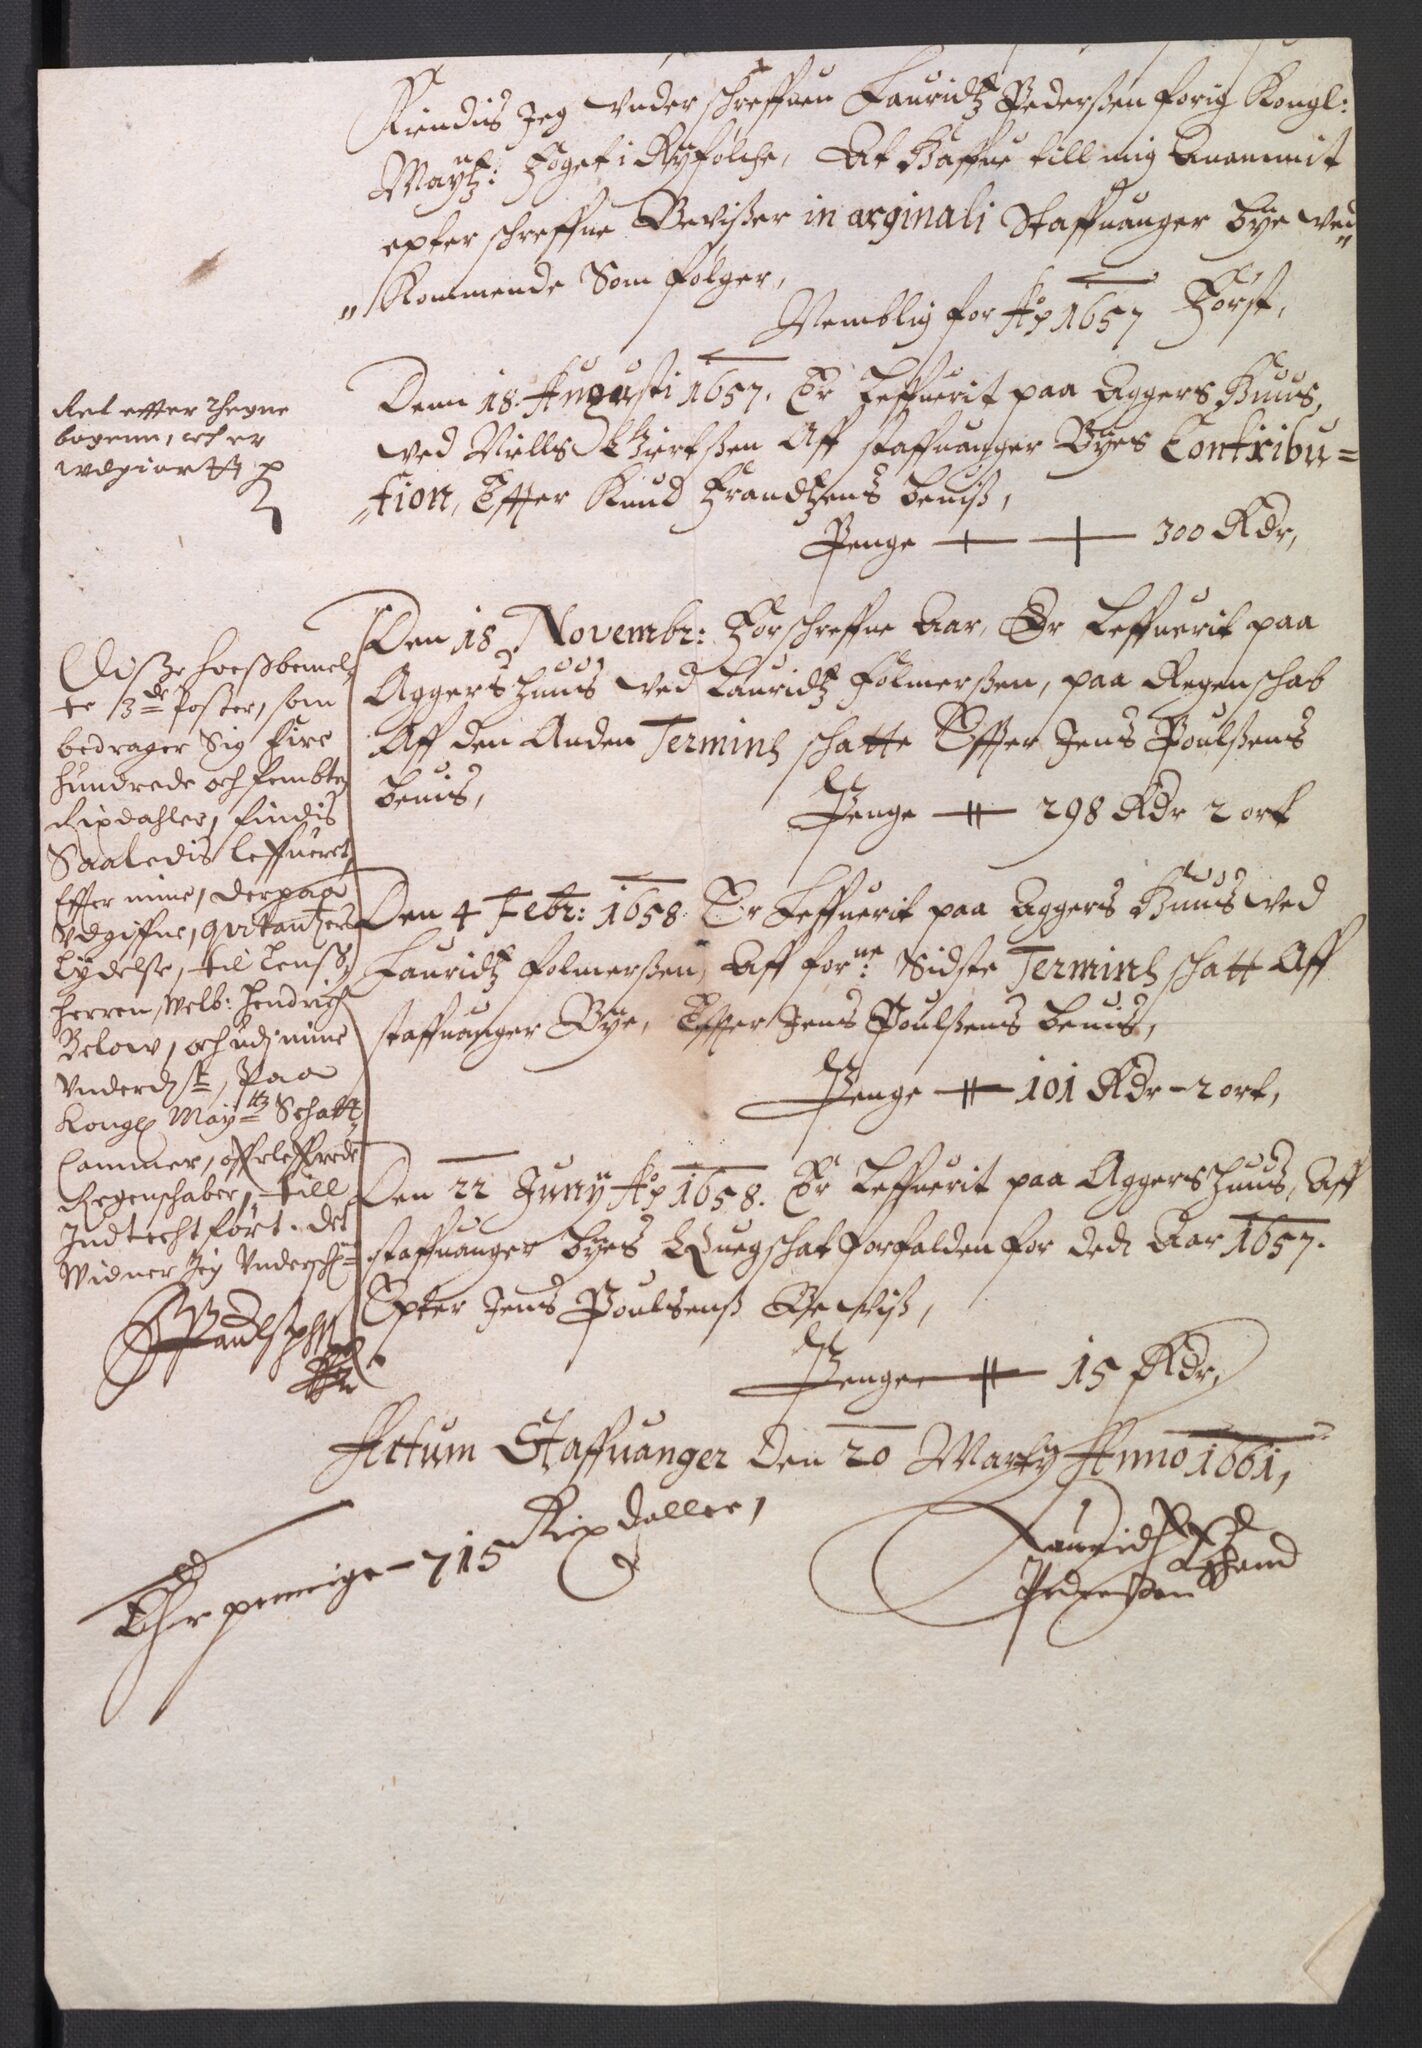 Kiendis Jeg vnderschreffuen Lauridtz Pederßen forig Kongl:
Maytz: Foget i Ryfølche, At Haffue till mig Anammit
epter schreffne Bevißer in orginali Staffuanger bye ved
Kommende Som følger,
Nemblig for Aô 1657 Først,
Denn 18. Augusti 1657. Er Leffuerit paa Aggers Huus,
ved Niells Aff staffuanger Byes Contribu=
tion, Effter Knud Frandtzens beuiß,
Penge 300 Rdr,
Den 18 Novembr: Forschreffne Aar, Er Leffuerit paa
Aggershuus ved Lauridtz Folmerßen, paa Regenschab
Aff den Anden Terminh schatte Effter Jens Poulßens
beuis,
Penge 298 Rdr 2 ort
Den 4 Febr: 1658 Er Leffuerit paa Aggers Huus ved
Lauridtz Folmerßen, Aff forne: Sidste Terminh schatt Aff
staffuanger Bye, Effter Jens Poulßens beuis,
Penge 101 Rdr - 2 ort,
Den 22 Junij Aô 1658. Er Leffuerit paa Aggershuus, Aff
staffuanger byes Quegschat forfalden for dedt Aar 1657.
Epter Jens Poulsenß Bewiß,
Penge 15 Rdr,
Actum Staffuanger Den 20 Martij Anno 1661,
Lauridtz
Pederßen
Egehand
Ehr penninge - 715 Rix daller,
Ret effter
bogenn, och er
vdgiort
Diße hoeßbemel
te 3de Poster, som
bedrager Sig fire
hundrede och fembten
Rixdahler, findis
Saaledis leffueret,
Effter mine, derpaa
Vdgiffne, qvitantzers
Lydelse, til Lenß
herren, Welb: Hendrich
Below, och udj mine
Vnderdst, Paa
Kongl Maytz Schatt
Cammer, offrleffrede
Regenschaber, till
Indtecht ført. det
Widner Jeg Vndersch